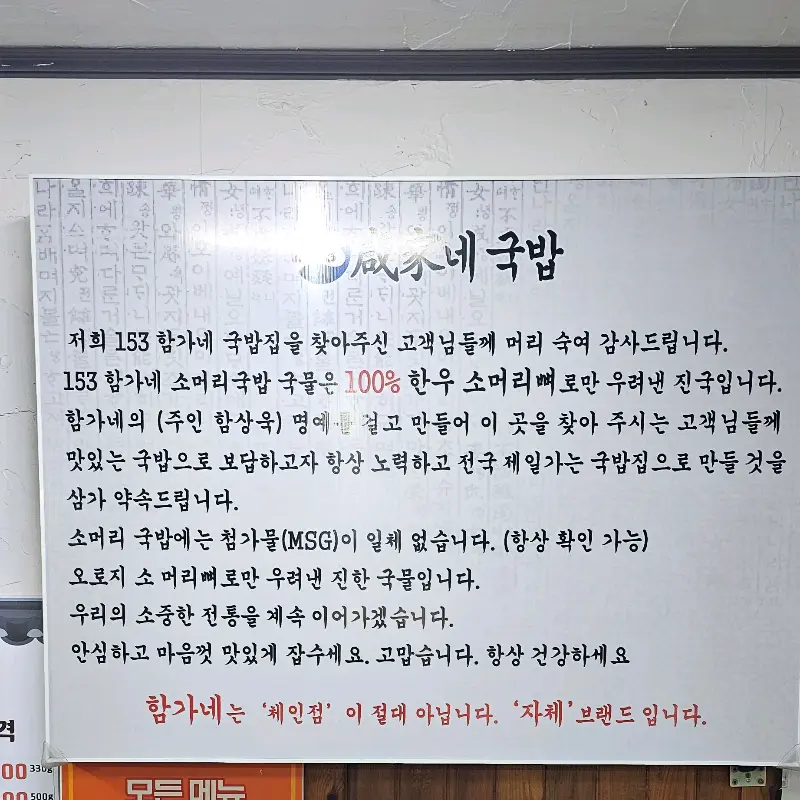 咸家네 국밥
저희 153 함가네 국밥집을 찾아주신 고객님들께 머리 숙여 감사드립니다.
153 함가네 소머리국밥 국물은 100% 한우 소머리뼈로만 우려낸 진국입니다.
함가네의 (주인 함상욱) 명예를 걸고 만들어 이 곳을 찾아 주시는 고객님들께
맛있는 국밥으로 보답하고자 항상 노력하고 전국 제일가는 국밥집으로 만들 것을
삼가 약속드립니다.
소머리 국밥에는 첨가물(MSG)이 일체 없습니다. (항상 확인 가능)
오로지 소 머리뼈로만 우려낸 진한 국물입니다.
우리의 소중한 전통을 계속 이어가겠습니다.
안심하고 마음껏 맛있게 잡수세요. 고맙습니다. 항상 건강하세요
함가네는 '체인점' 이 절대 아닙니다. '자체' 브랜드 입니다.
격
00 330g
00 500g
모든메뉴